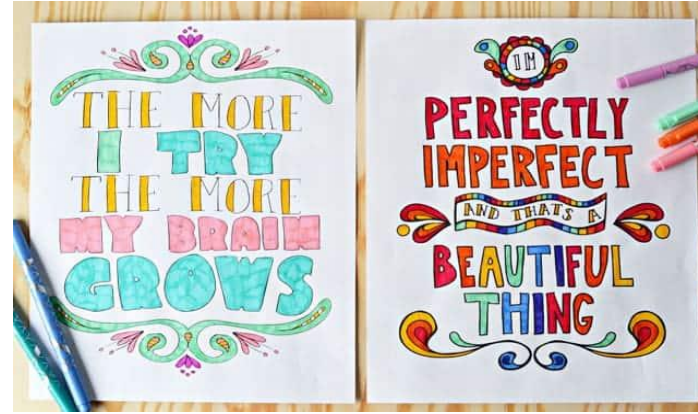 THE MORE
I TRY
THE MORE
MY BRAIN
GROWS
I'M
PERFECTLY
IMPERFECT
AND THATS A
BEAUTIFUL
THING